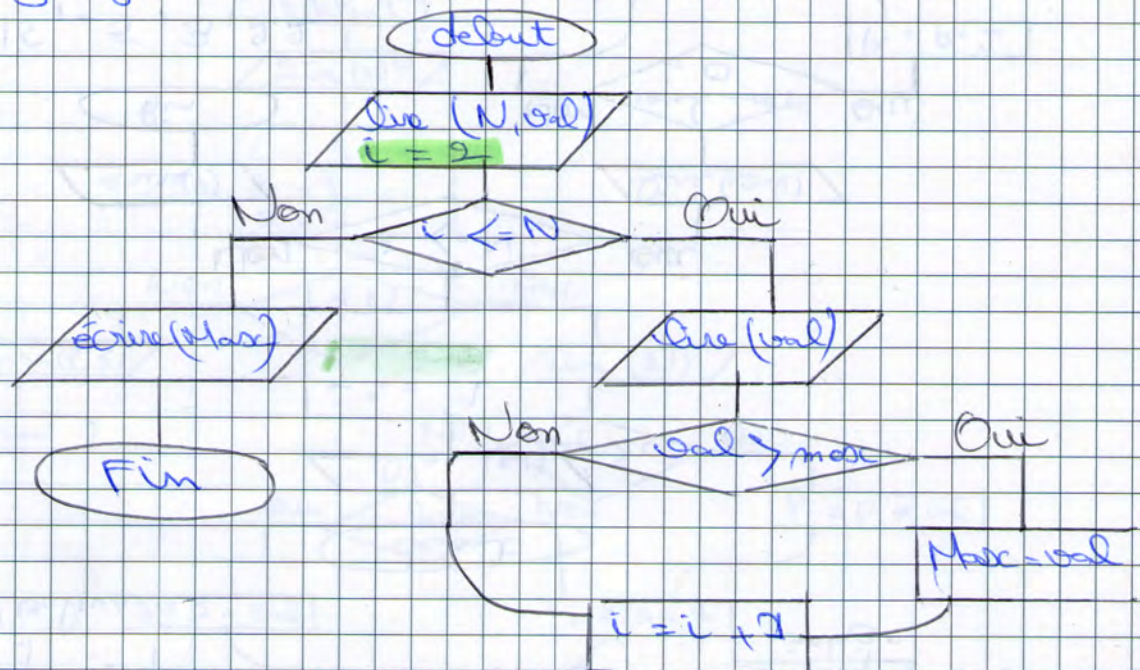 debut
lire (N, val)
i = 2
Non
i <= N
Oui
écrire(Max)
lire (val)
Non
val > max
Oui
Fin
Max = val
i = i + 1